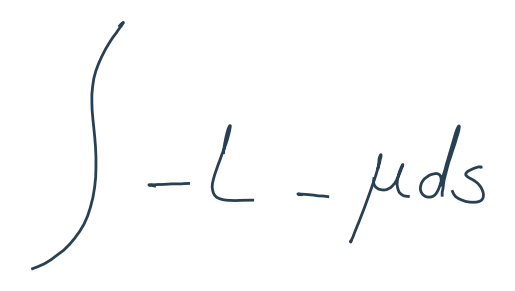 ∫ -L - μds